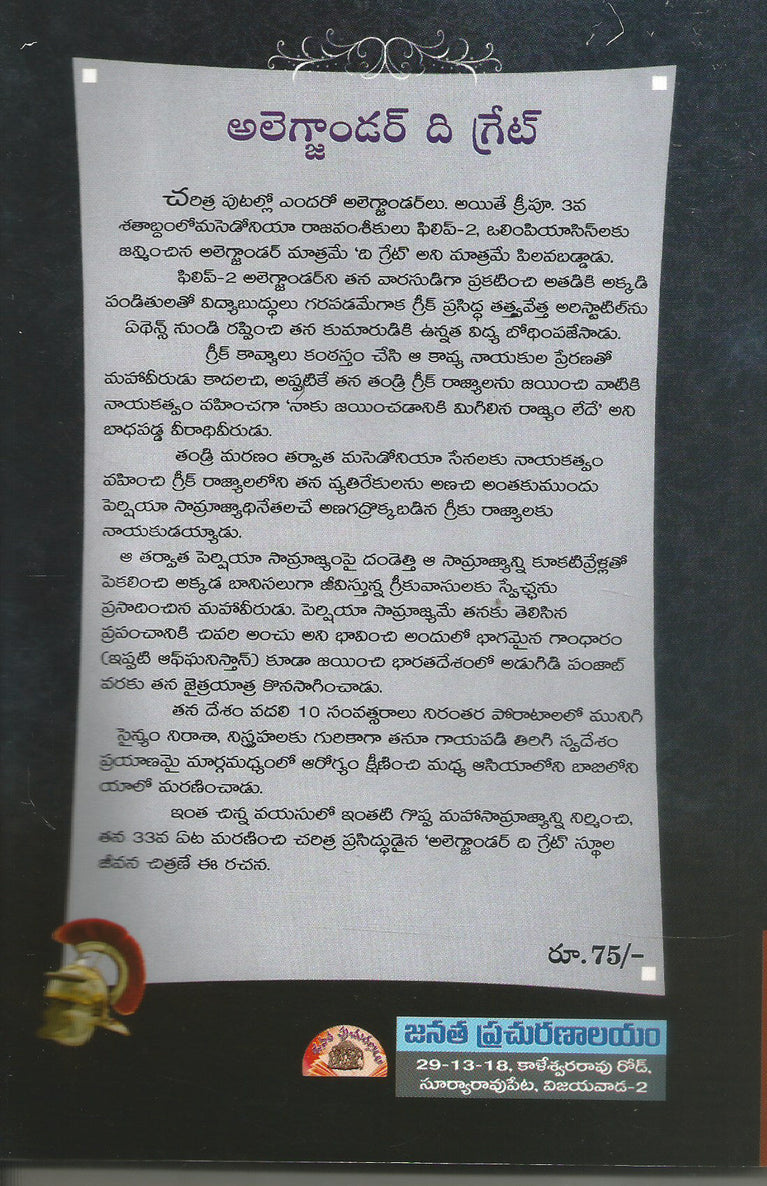 అలెగ్జాండర్ ది గ్రేట్
చరిత్ర పుటల్లో ఎందరో అలెగ్జాండర్‌లు. అయితే క్రీ.పూ. 3వ
శతాబ్దంలోమసెడోనియా రాజవంశీకులు ఫిలిప్-2, ఒలింపియాసిస్‌లకు
జన్మించిన అలెగ్జాండర్ మాత్రమే 'ది గ్రేట్' అని మాత్రమే పిలవబడ్డాడు.
ఫిలిప్-2 అలెగ్జాండర్‌ని తన వారసుడిగా ప్రకటించి అతడికి అక్కడి
పండితులతో విద్యాబుద్ధులు గరపడమేగాక గ్రీక్ ప్రసిద్ధ తత్త్వవేత్త అరిస్టాటిల్‌ను
ఏథెన్స్ నుండి రప్పించి తన కుమారుడికి ఉన్నత విద్య బోధింపజేసాడు.
గ్రీక్ కావ్యాలు కంఠస్తం చేసి ఆ కావ్య నాయకుల ప్రేరణతో
మహావీరుడు కాదలచి, అప్పటికే తన తండ్రి గ్రీక్ రాజ్యాలను జయించి వాటికి
నాయకత్వం వహించగా 'నాకు జయించడానికి మిగిలిన రాజ్యం లేదే' అని
బాధపడ్డ వీరాధివీరుడు.
తండ్రి మరణం తర్వాత మసెడోనియా సేనలకు నాయకత్వం
వహించి గ్రీక్ రాజ్యాలలోని తన వ్యతిరేకులను అణచి అంతకుముందు
పెర్షియా సామ్రాజ్యాధినేతలచే అణగద్రొక్కబడిన గ్రీకు రాజ్యాలకు
నాయకుడయ్యాడు.
ఆ తర్వాత పెర్షియా సామ్రాజ్యంపై దండెత్తి ఆ సామ్రాజ్యాన్ని కూకటివ్రేళ్లతో
పెకలించి అక్కడ బానిసలుగా జీవిస్తున్న గ్రీకువాసులకు స్వేచ్ఛను
ప్రసాదించిన మహావీరుడు. పెర్షియా సామ్రాజ్యమే తనకు తెలిసిన
ప్రపంచానికి చివరి అంచు అని భావించి అందులో భాగమైన గాంధారం
(ఇప్పటి ఆఫ్ఘనిస్తాన్) కూడా జయించి భారతదేశంలో అడుగిడి పంజాబ్
వరకు తన జైత్రయాత్ర కొనసాగించాడు.
తన దేశం వదలి 10 సంవత్సరాలు నిరంతర పోరాటాలలో మునిగి
సైన్యం నిరాశా, నిస్పృహలకు గురికాగా తనూ గాయపడి తిరిగి స్వదేశం
ప్రయాణమై మార్గమధ్యంలో ఆరోగ్యం క్షీణించి మధ్య ఆసియాలోని బాబిలోని
యాలో మరణించాడు.
ఇంత చిన్న వయసులో ఇంతటి గొప్ప మహాసామ్రాజ్యాన్ని నిర్మించి,
తన 33వ ఏట మరణించి చరిత్ర ప్రసిద్ధుడైన 'అలెగ్జాండర్ ది గ్రేట్' స్థూల
జీవన చిత్రణే ఈ రచన.
రూ. 75/-
జనతా ప్రచురణాలయం
జనత ప్రచురణాలయం
29-13-18, కాళేశ్వరరావు రోడ్,
సూర్యారావుపేట, విజయవాడ-2